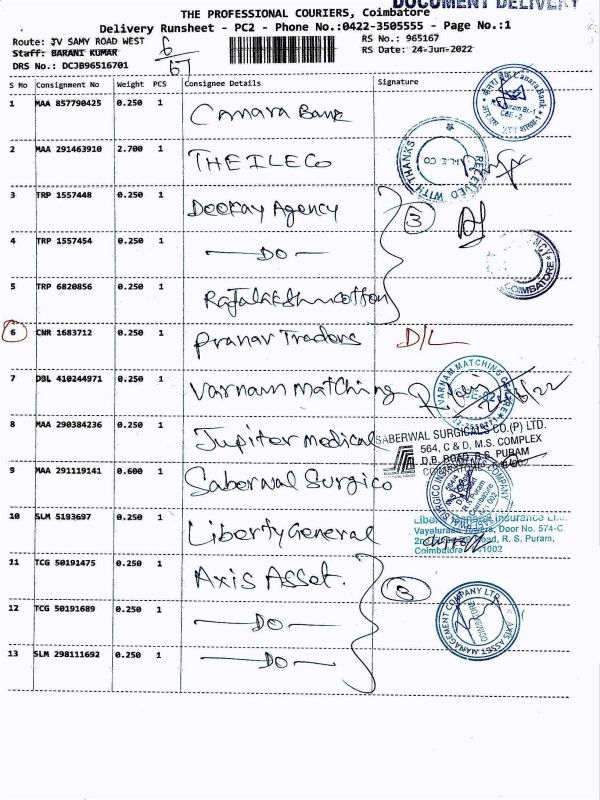 DOCUMENT DELIVERY
THE PROFESSIONAL COURIERS, Coimbatore
Delivery Runsheet - PC2 - Phone No.:0422-3505555 - Page No.:1
Route: JV SAMY ROAD WEST
Staff: BARANI KUMAR
DRS No.: DCJB96516701
6/67
RS No.: 965167
RS Date: 24-Jun-2022
S No Consignment No Weight PCS Consignee Details Signature
1 MAA 857790425 0.250 1 Canara Bank
Canara Bank
2 MAA 291463910 2.700 1 THEILECo
RECEIVED WITH THANKS
3 TRP 1557448 0.250 1 Dookay Agency
3
4 TRP 1557454 0.250 1 —DO—
COIMBATORE
5 TRP 6820856 0.250 1 Rajalakshmi cotton
6 CNR 1683712 0.250 1 Pranav Traders D/L
7 DBL 410244971 0.250 1 Varnam matching
VARNAM MATCHING CENTRE
8 MAA 290384236 0.250 1 Jupiter medical
SABERWAL SURGICALS CO.(P) LTD.
564, C & D, M.S. COMPLEX
D.B. ROAD, R.S. PURAM
9 MAA 291119141 0.600 1 Saberwal Surgico
R.S Puram
10 SLM 5193697 0.250 1 Liberty General
Liberty General Insurance
Door No. 574-C
R. S. Puram,
Coimbatore
11 TCG 50191475 0.250 1 Axis Asset.
3
12 TCG 50191689 0.250 1 —DO—
AXIS ASSET MANAGEMENT COMPANY LTD
COIMBATORE
13 SLM 298111692 0.250 1 —DO—